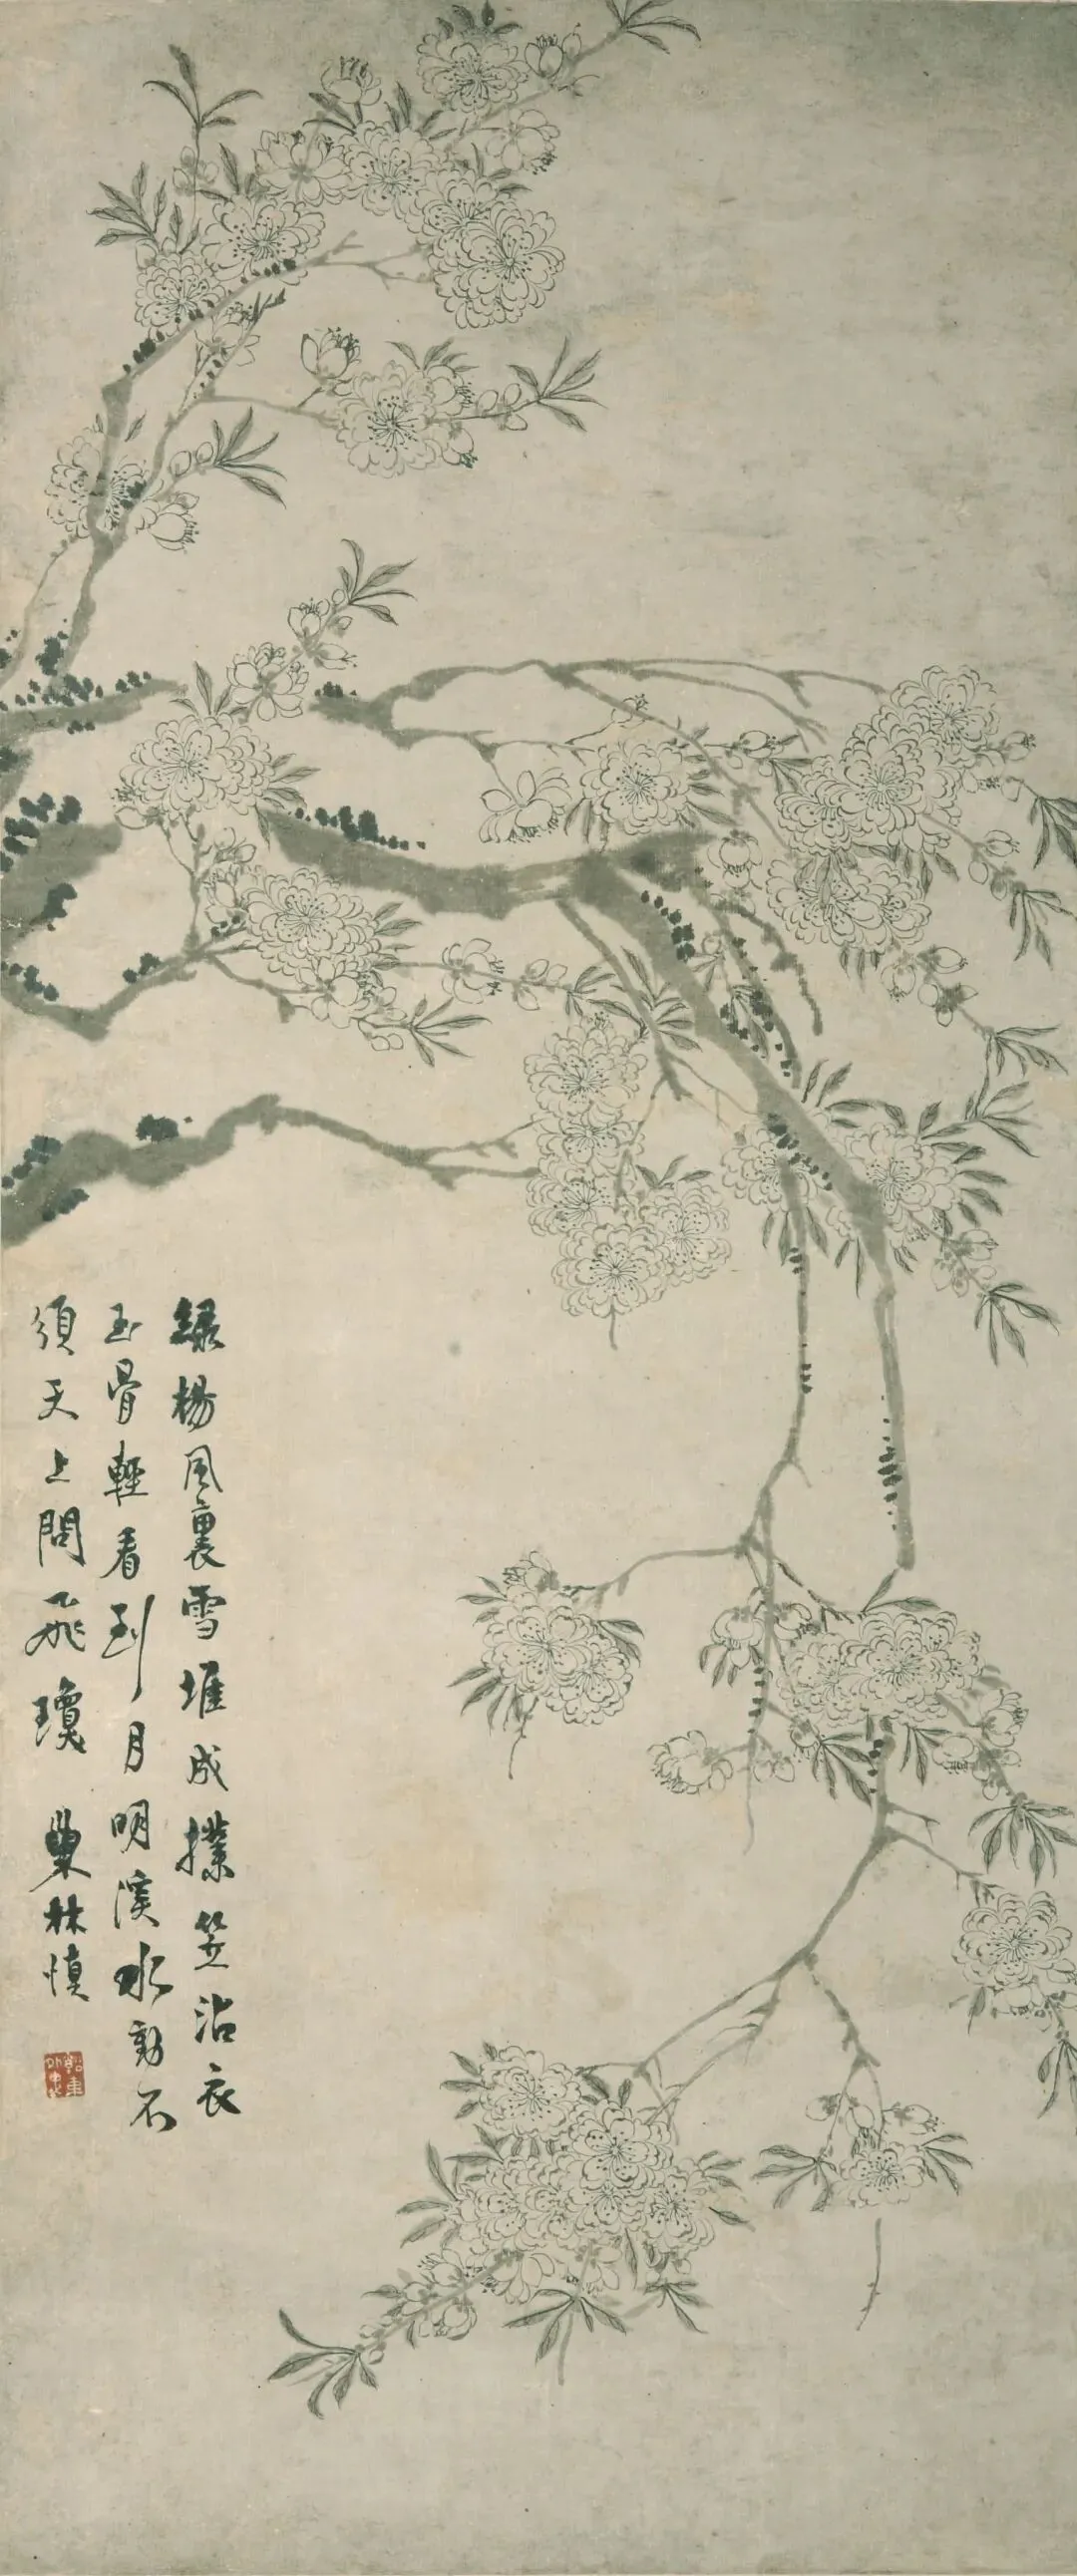 綠楊風裏雪堆成撲笠沾衣
玉骨輕看到月明溪水動不
須天上問飛瓊 粟林慎